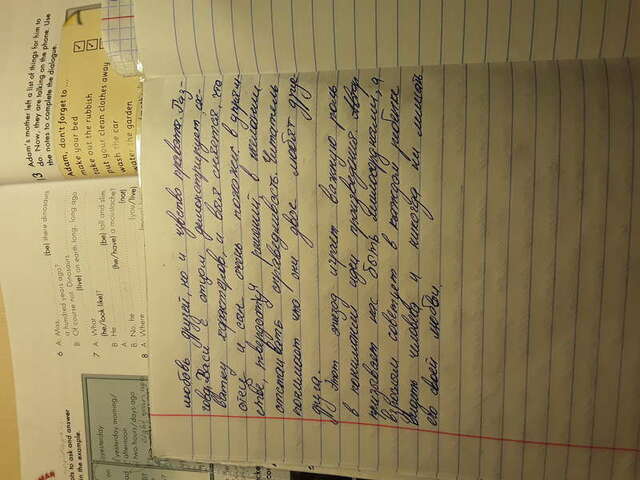 ots to ask and answer
in the example.
yesterday
yesterday morning/
afternoon
two hours/days ago
6 A: Was, (be) there dinosaurs
a hundred years ago?
B: Of course not. Dinosaurs
(live) on earth long, long ago.
7 A: What
(he/look like)?
B: He (be) tall and slim.
A: (he/have) a moustache?
B: No, he (not)
8 A: Where (you/live)
3 Adam's mother left a list of things for him to
do. Now, they are talking on the phone. Use
the notes to complete the dialogue.
Adam, don't forget to ...
make your bed
take out the rubbish
put your clean clothes away
wash the car
water the garden
любовь друзей, но и чувство правоты. Раз-
говор Васи с отцом, демонстрирует сх-
ватку характеров, и выясняется, что
отец и сын очень похожи: в упрям-
стве, твердости решений, в желании
отстаивать справедливость. Читатель
понимает что они двое любят друг
друга.
Этот эпизод играет важную роль
в понимании идеи произведения. Автор
призывает нас быть милосердными, а
взрослым советует в каждом ребенке
видеть человека и никогда не лишать
его своей любви.